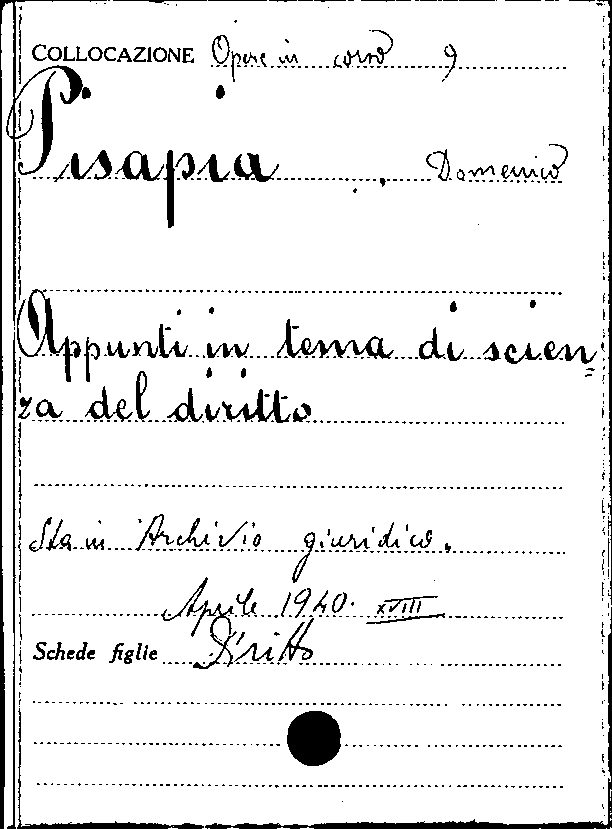 COLLOCAZIONE Opere in corso 9
Pisapia , Domenico
Appunti in tema di scien=
za del diritto
Sta in Archivio giuridico.
Aprile 1940. XVIII
Schede figlie Diritto